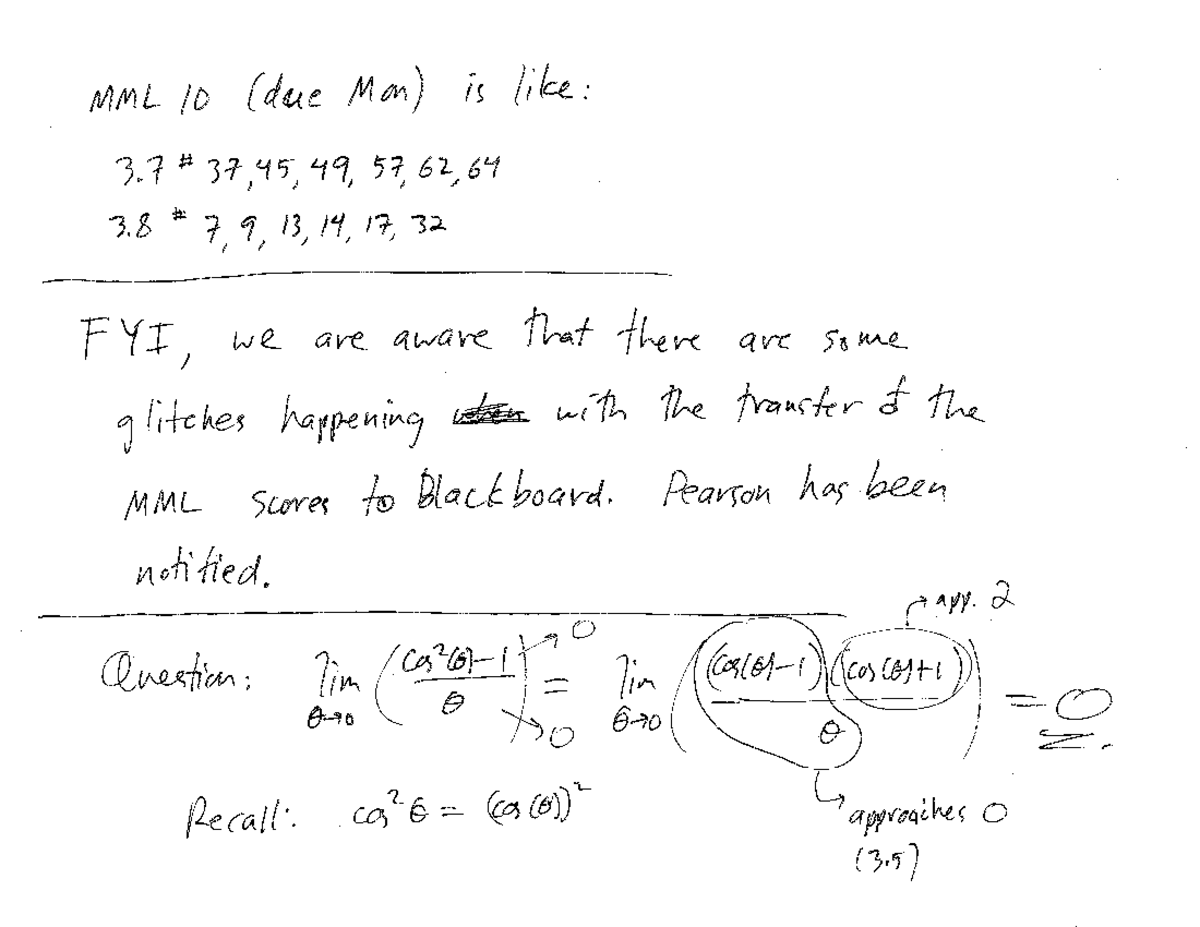 MML 10 (due Mon) is like:
3.7 # 37, 45, 49, 57, 62, 64
3.8 # 7, 9, 13, 14, 17, 32
FYI, we are aware that there are some
glitches happening with the transfer of the
MML scores to Blackboard. Pearson has been
notified.
app. 2
Question: lim θ→0 (cos²(θ)-1 / θ) →0 →0 = lim θ→0 ((cos(θ)-1)(cos(θ)+1) / θ) = 0
Recall: cos²θ = (cos(θ))²
approaches 0
(3.5)